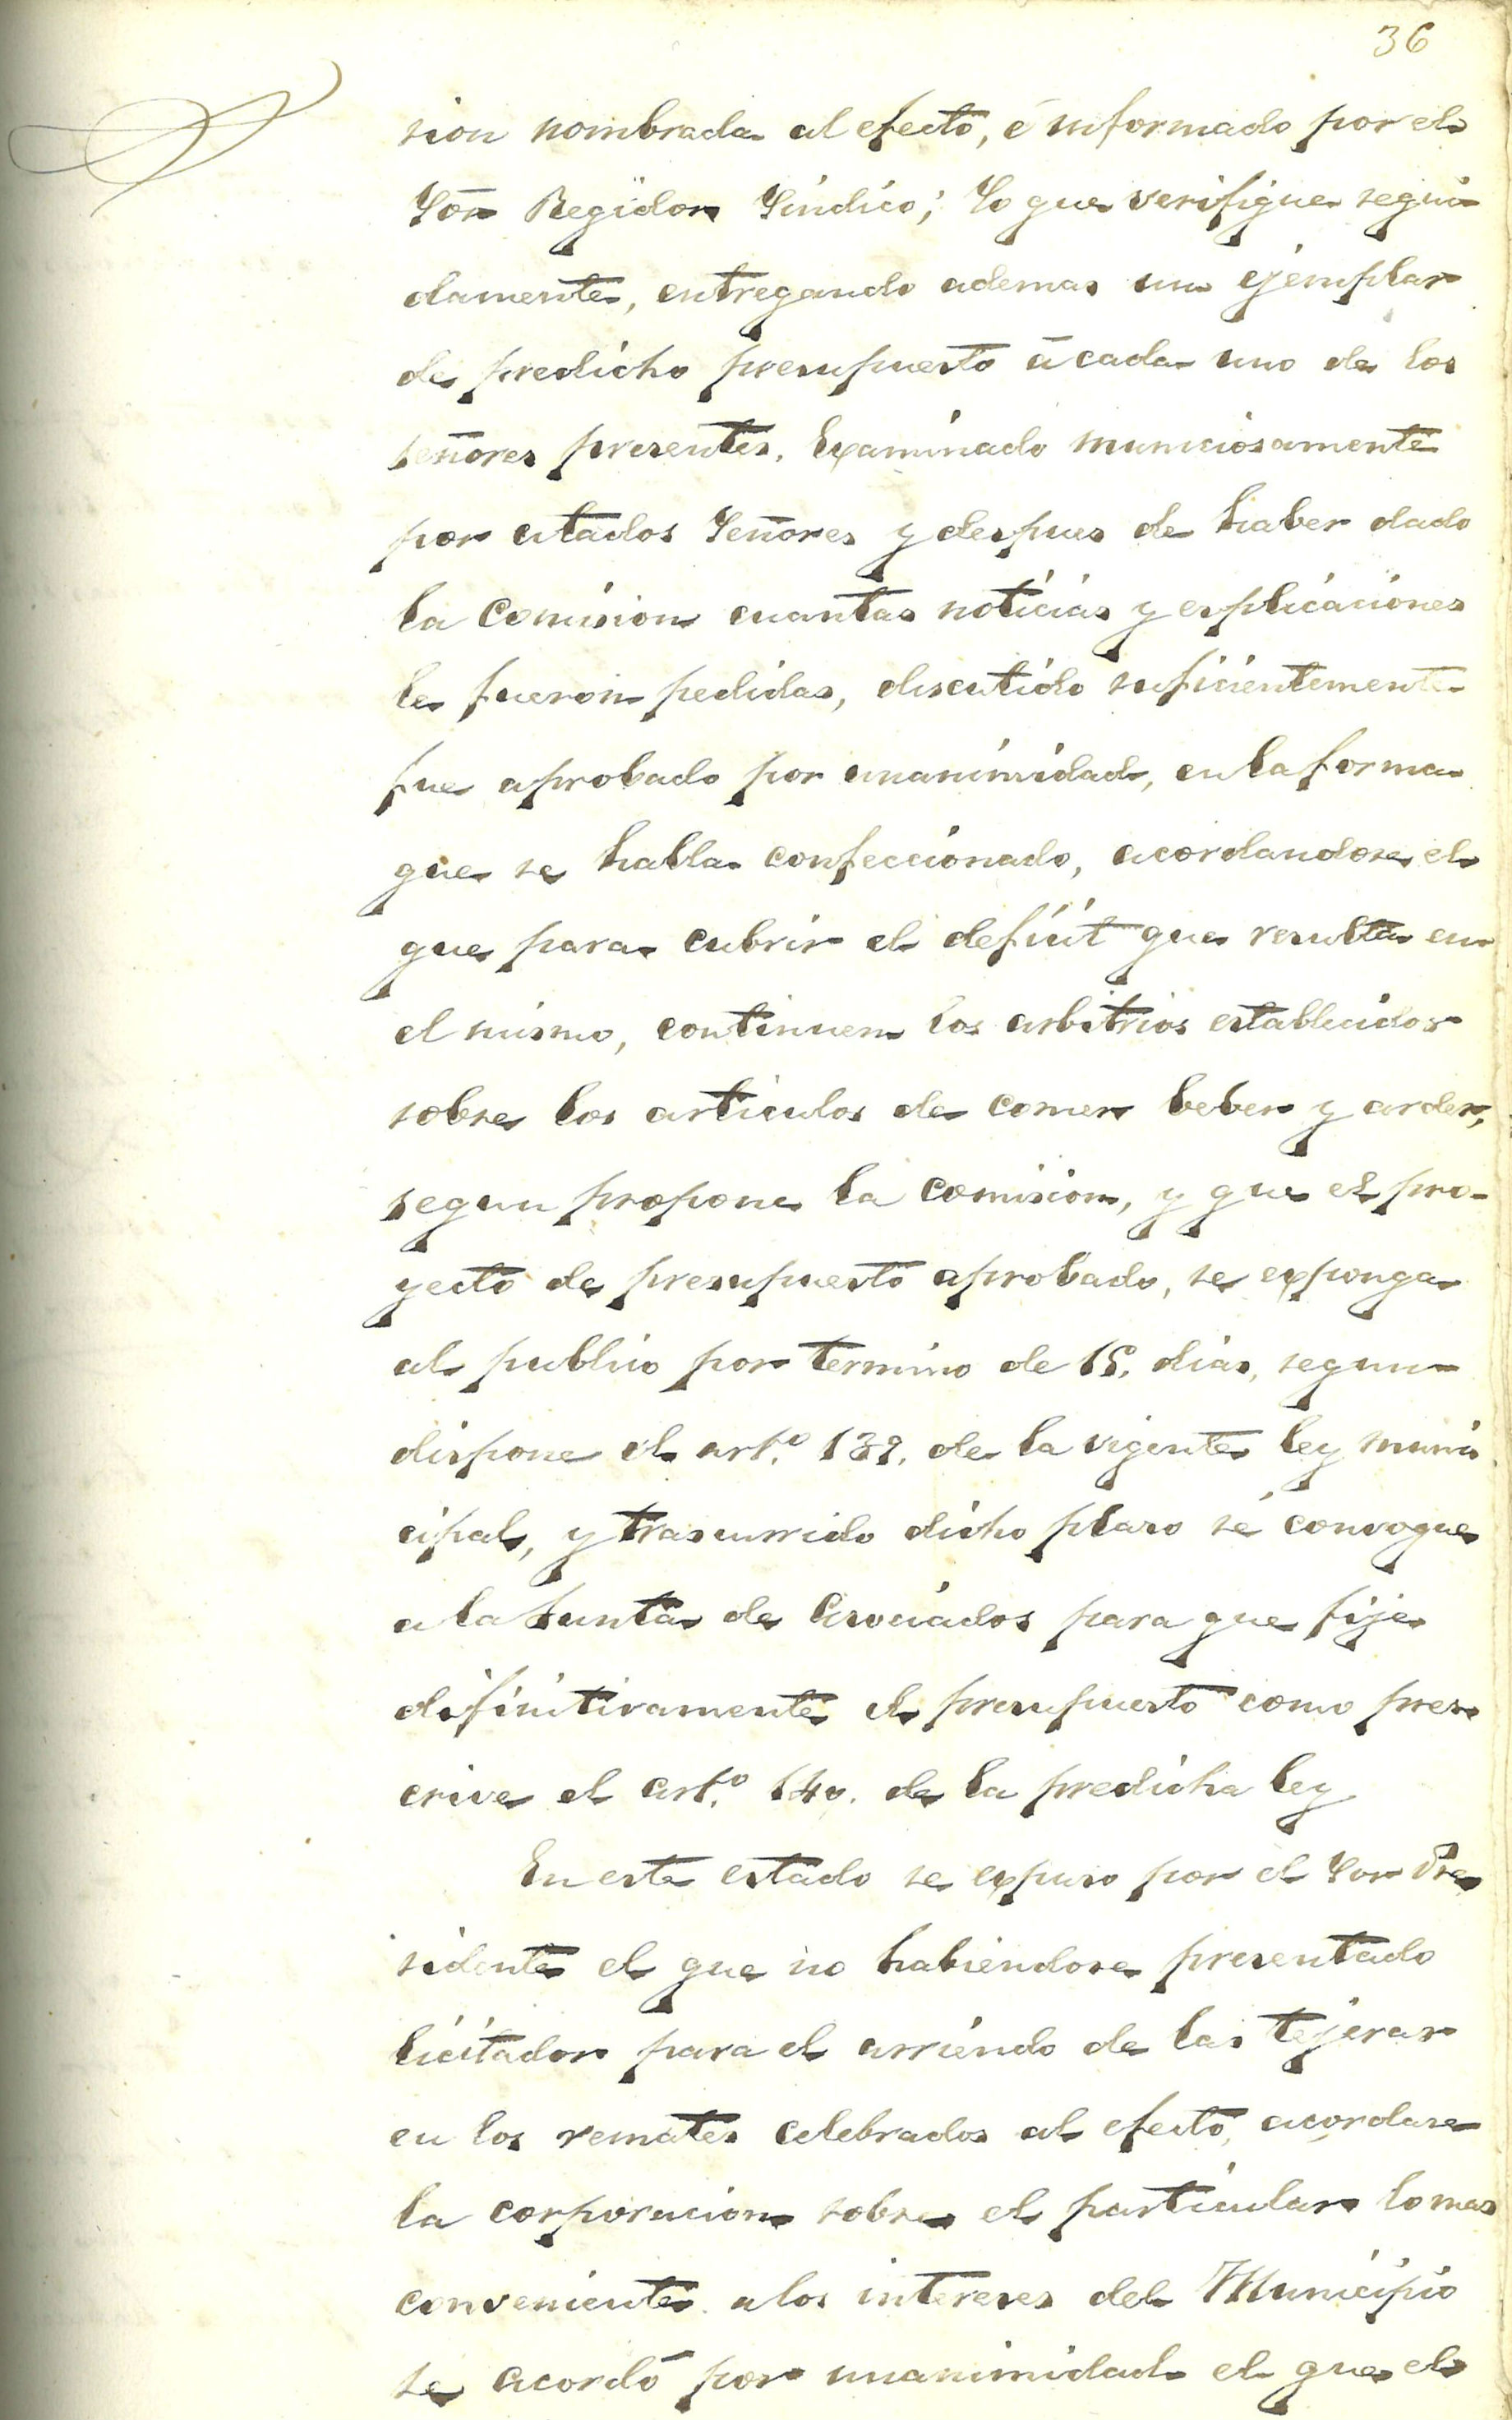 36
sion nombrada al efecto, é informado por el
Sōr Regidor Sindico; Lo que verifique segui
damente, entregando ademas un ejemplar
de predicho presupuesto á cada uno de los
señores presentes. Examinado municiosamente
por citados Señores y despues de haber dado
la Comision cuantas noticias y esplicaciones
le fueron pedidas, discutido suficientemente
fue aprobado por unanimidad, en la forma
que se halla confeccionado, acordandose el
que para cubrir el deficit que resulta en
el mismo, continuen los arbitrios establecidos
sobre los articulos de comer beber y arder,
segun propone la comision, y que el pro-
yecto de presupuesto aprobado, se exponga
al publico por termino de 15. dias, segun
dispone el art.º 139. de la vigente ley muni
cipal, y trascurrido dicho plaso se convoque
a la Junta de Asociados para que fije
difinitivamente el presupuesto como pres
crive el art.º 140. de la predicha ley
En este estado se expuso por el Sor Pre
sidente el que no habiendose presentado
licitador para el arriendo de las tejeras
en los remates celebrados al efecto, acordase
la corporacion sobre el particular lo mas
conveniente a los intereses del Municipio
se acordó por unanimidad el que el